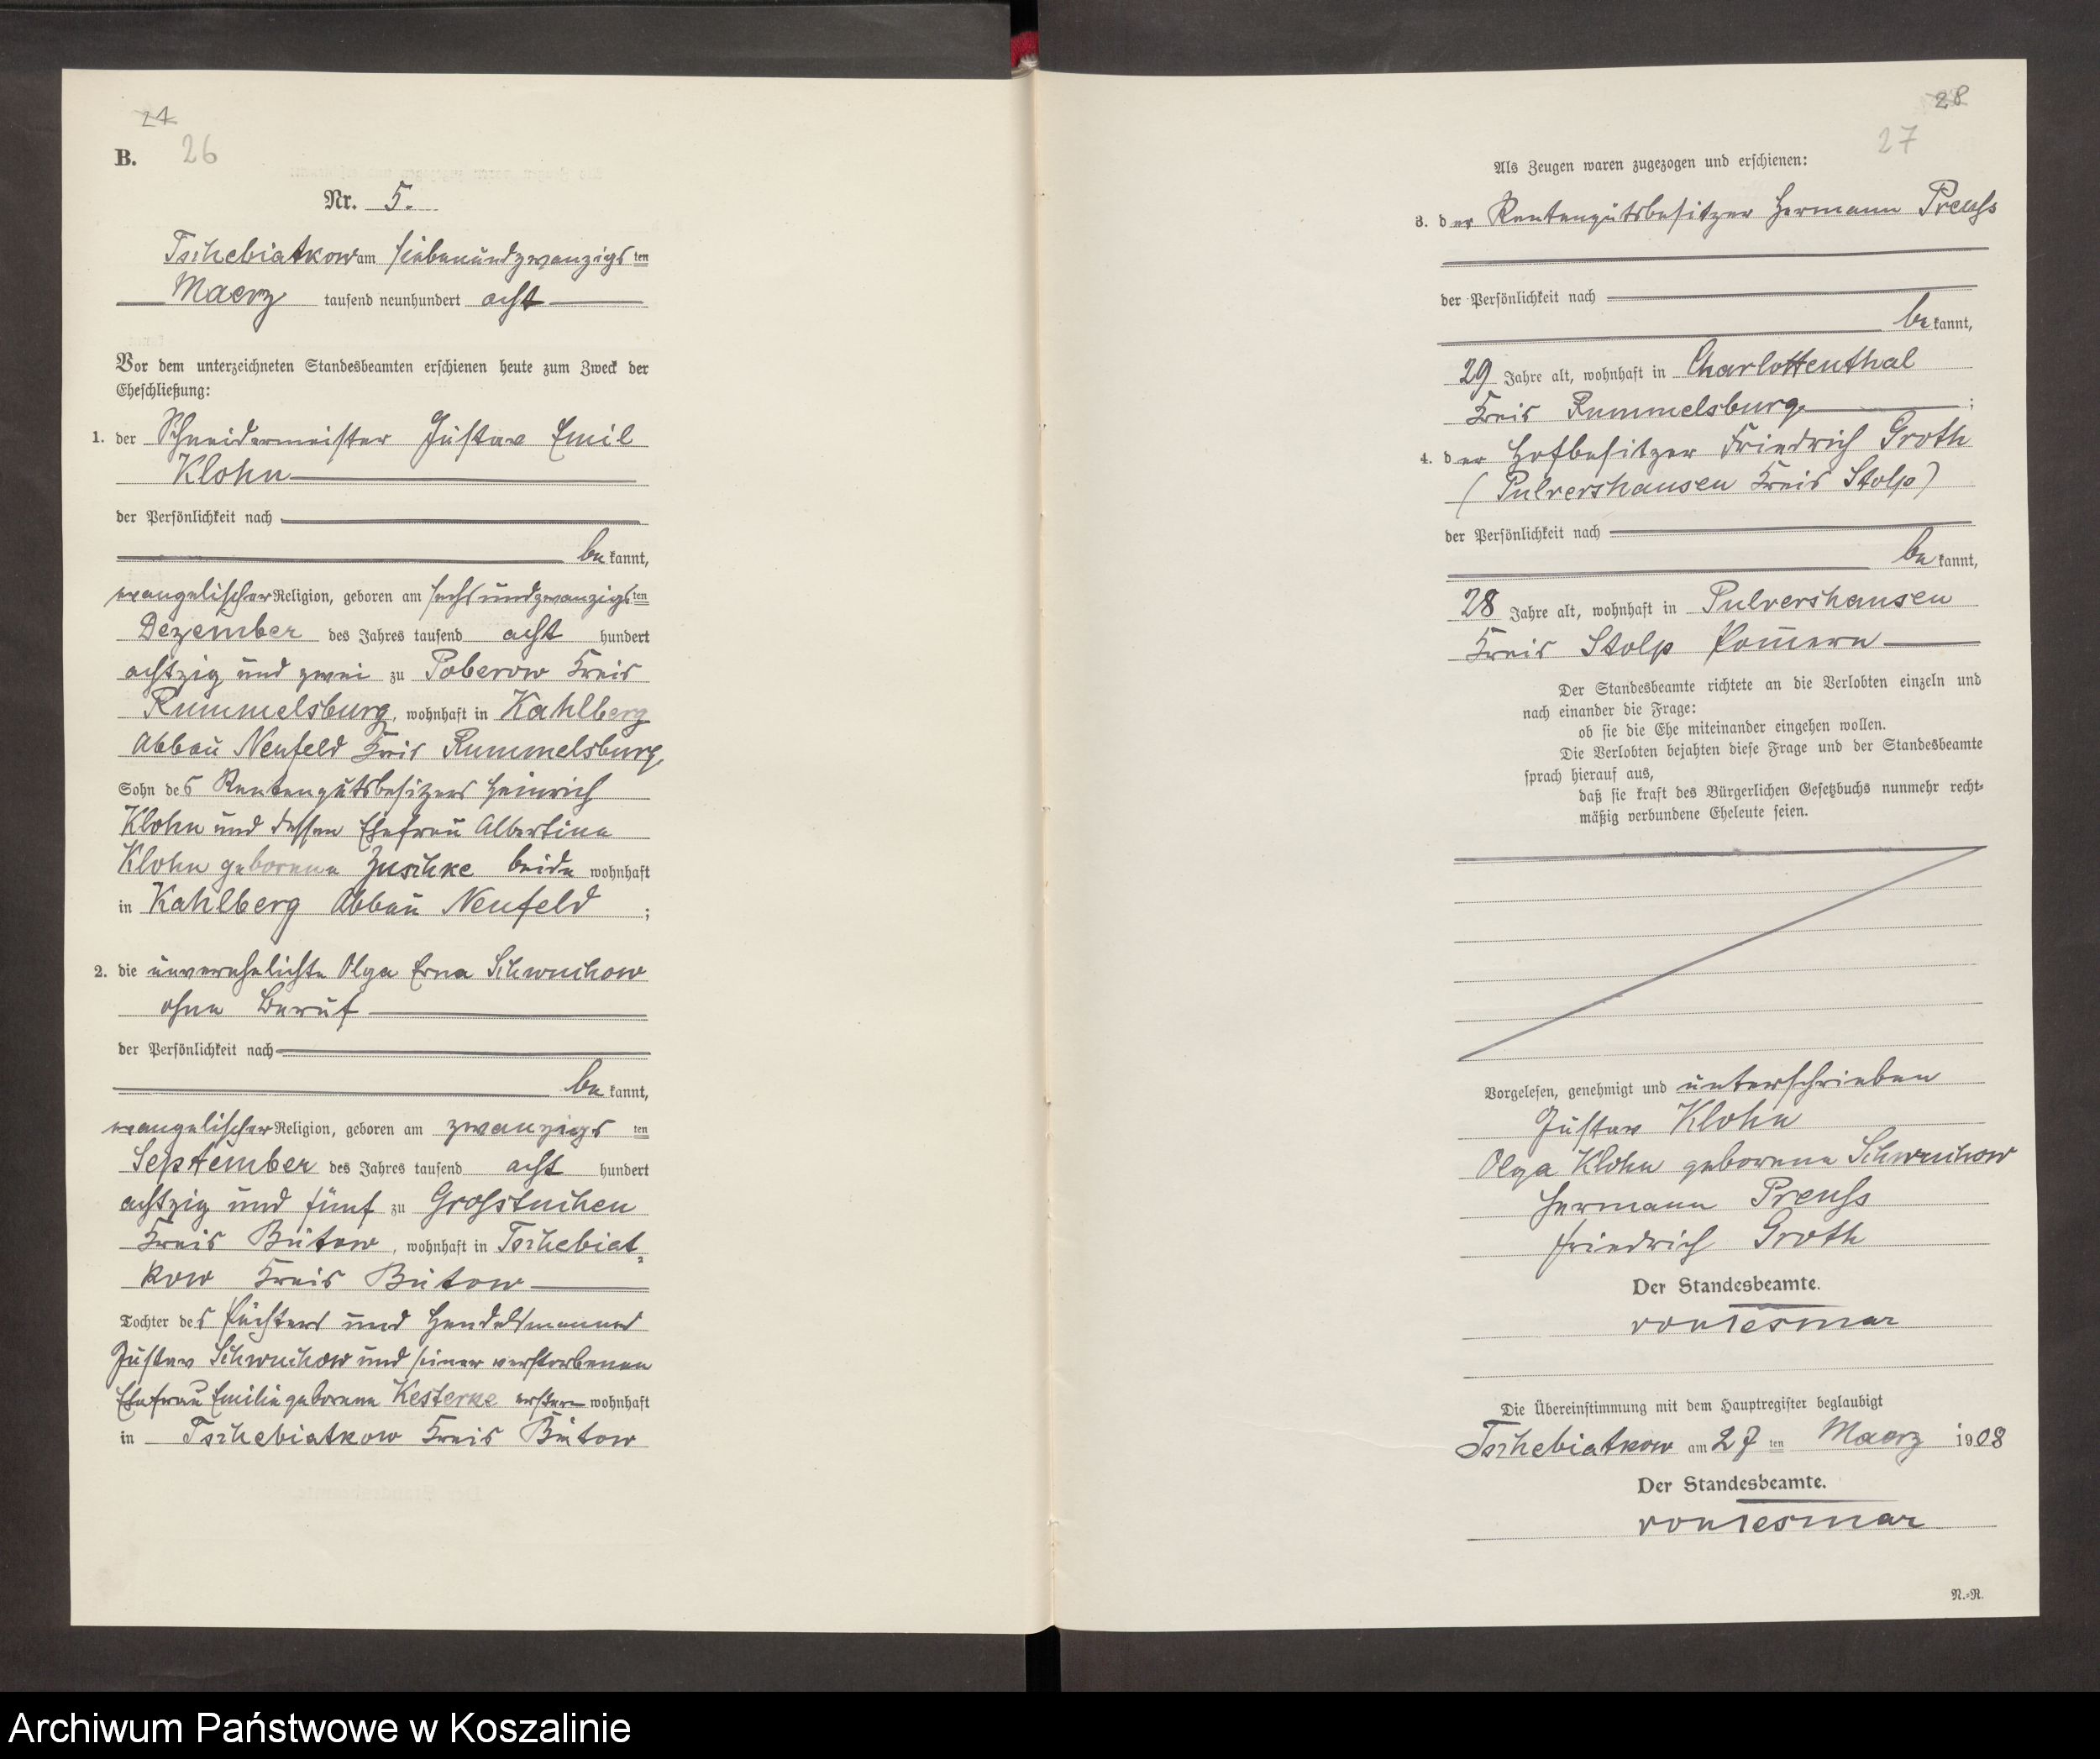 24
B. 26
Nr. 5.
Tschebiatkow am siebenundzwanzigsten
Maerz tausend neunhundert acht
Vor dem unterzeichneten Standesbeamten erschienen heute zum Zweck der
Eheschließung:
1. der Schneidermeister Gustav Emil
Klohn
der Persönlichkeit nach
bekannt,
evangelischer Religion, geboren am sechsundzwanzigsten
Dezember des Jahres tausend acht hundert
achtzig und zwei zu Poberow Kreis
Rummelsburg, wohnhaft in Kahlberg
Abbau Neufeld Kreis Rummelsburg,
Sohn des Rentengutsbesitzers Heinrich
Klohn und dessen Ehefrau Albertine
Klohn geborene Zuschke beide wohnhaft
in Kahlberg Abbau Neufeld ;
2. die unverehelichte Olga Erna Schwuchow
ohne Beruf
der Persönlichkeit nach
bekannt,
evangelischer Religion, geboren am zwanzigsten
September des Jahres tausend acht hundert
achtzig und fünf zu Grosstuchen
Kreis Bütow, wohnhaft in Tschebiat=
kow Kreis Bütow
Tochter des Pächters und Handelsmannes
Gustav Schwuchow und seiner verstorbenen
Ehefrau Emilie geborene Kesterke ersterer wohnhaft
in Tschebiatkow Kreis Bütow
28
27
Als Zeugen waren zugezogen und erschienen:
3. der Rentengutsbesitzer Hermann Preuss
der Persönlichkeit nach
bekannt,
29 Jahre alt, wohnhaft in Charlottenthal
Kreis Rummelsburg ;
4. der Hofbesitzer Friedrich Groth
(Pulvershausen Kreis Stolp)
der Persönlichkeit nach
bekannt,
28 Jahre alt, wohnhaft in Pulvershausen
Kreis Stolp Pom̄ern
Der Standesbeamte richtete an die Verlobten einzeln und
nach einander die Frage:
ob sie die Ehe miteinander eingehen wollen.
Die Verlobten bejahten diese Frage und der Standesbeamte
sprach hierauf aus,
daß sie kraft des Bürgerlichen Gesetzbuchs nunmehr recht=
mäßig verbundene Eheleute seien.
Vorgelesen, genehmigt und unterschrieben
Gustav Klohn
Olga Klohn geborene Schwuchow
Hermann Preuss
Friedrich Groth
Der Standesbeamte.
Die Übereinstimmung mit dem Hauptregister beglaubigt
Tschebiatkow am 27 ten Maerz 1908
Der Standesbeamte.
N.=R.
Archiwum Państwowe w Koszalinie